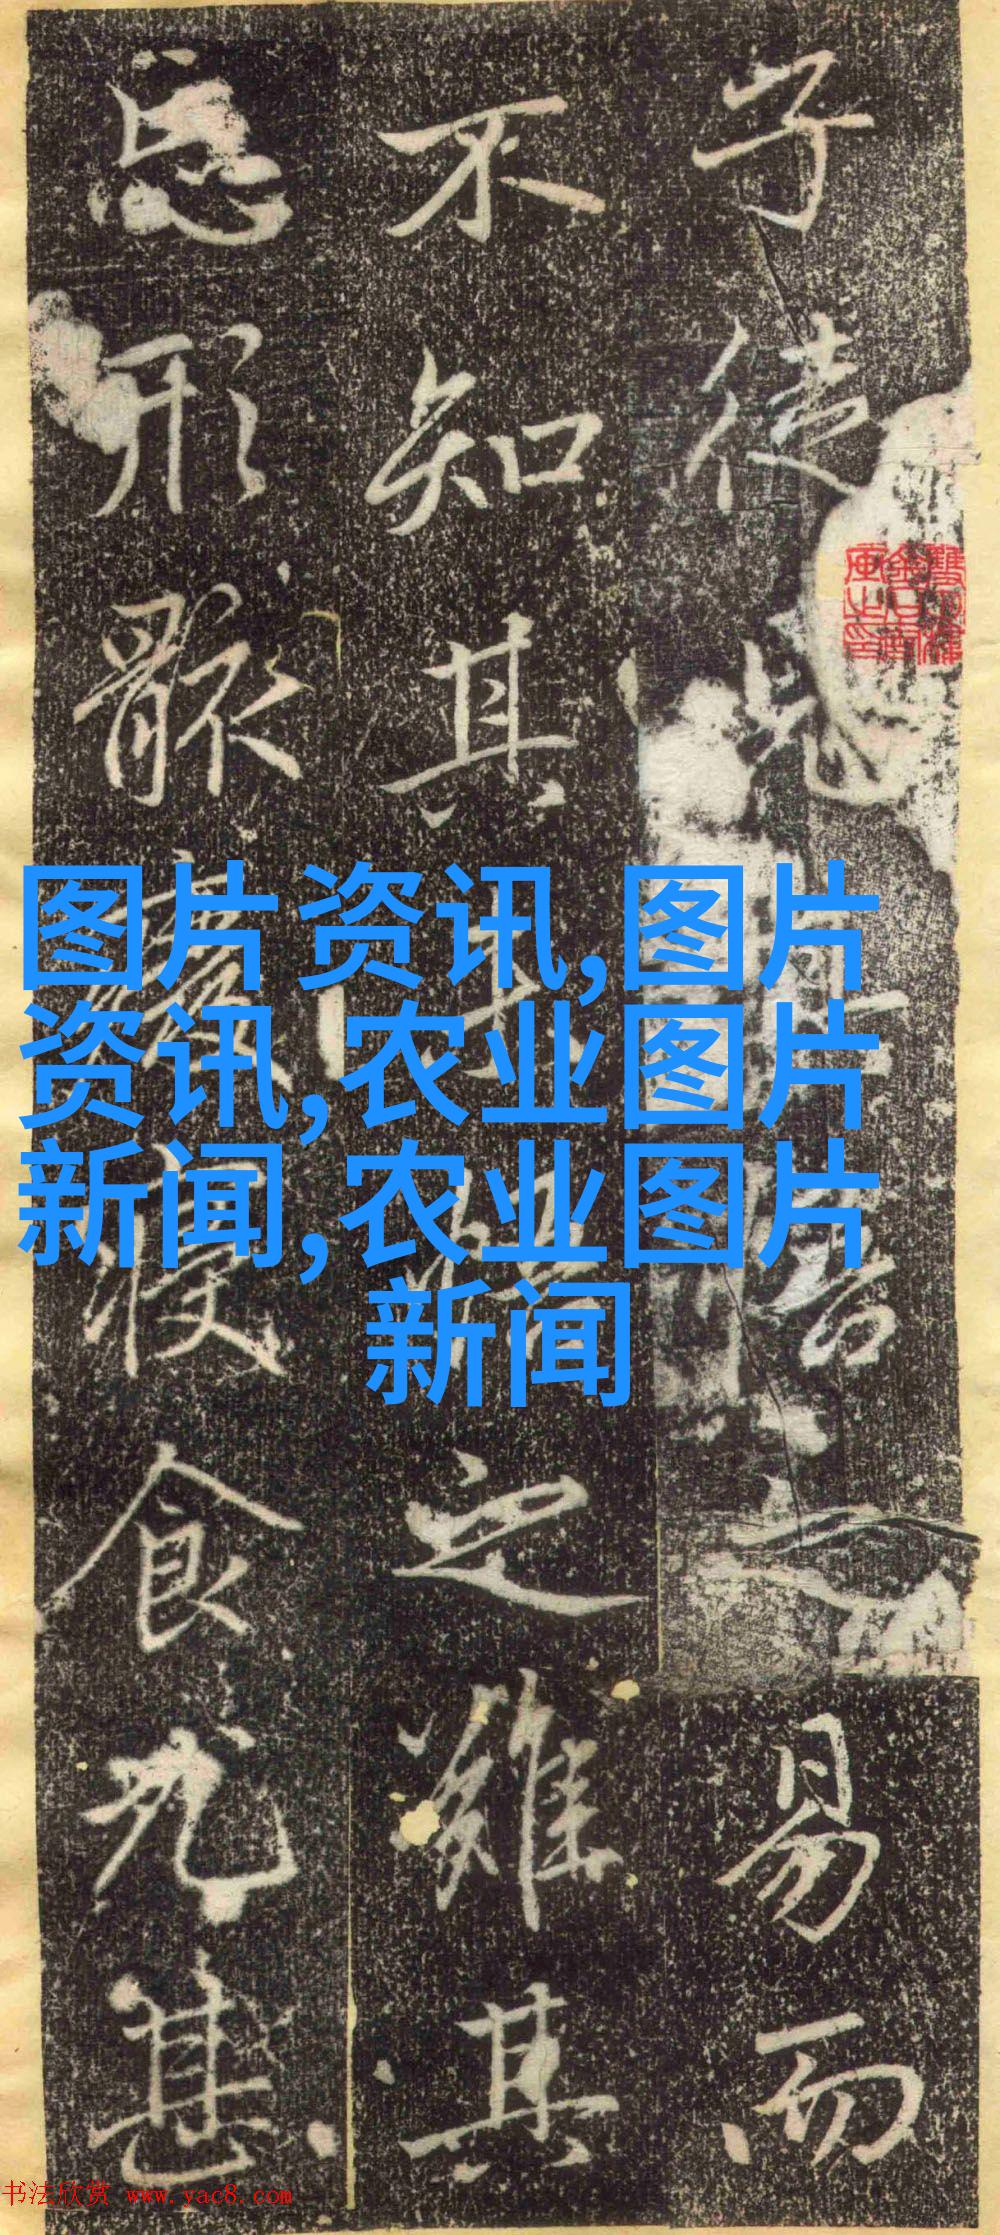 子徒見之易而
不知其之難其
忘形骸廢寢食尤甚
图片资讯,图片
资讯,农业图片
新闻,农业图片
新闻
书法欣赏 www.yac8.com